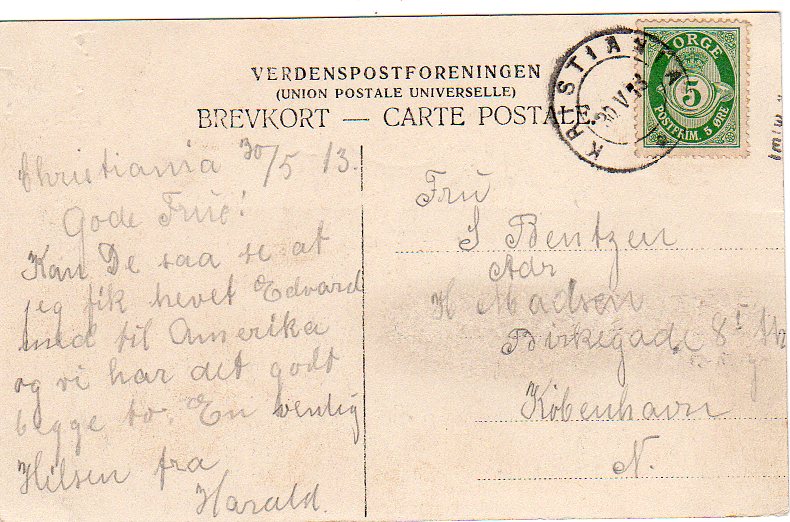 VERDENSPOSTFORENINGEN
(UNION POSTALE UNIVERSELLE)
BREVKORT — CARTE POSTALE
KRISTIANIA
30 V 13
NORGE
5
POSTFRIM. 5 ØRE
Christiania 30/5 13.
Gode Frue!
Kan De saa se at
jeg fik hevet Edvard
med til Amerika
og vi har det godt
begge to. En venlig
Hilsen fra
Harald.
Fru
S Bentzen
Adr
H Madsen
Birkegade 8
København
N.